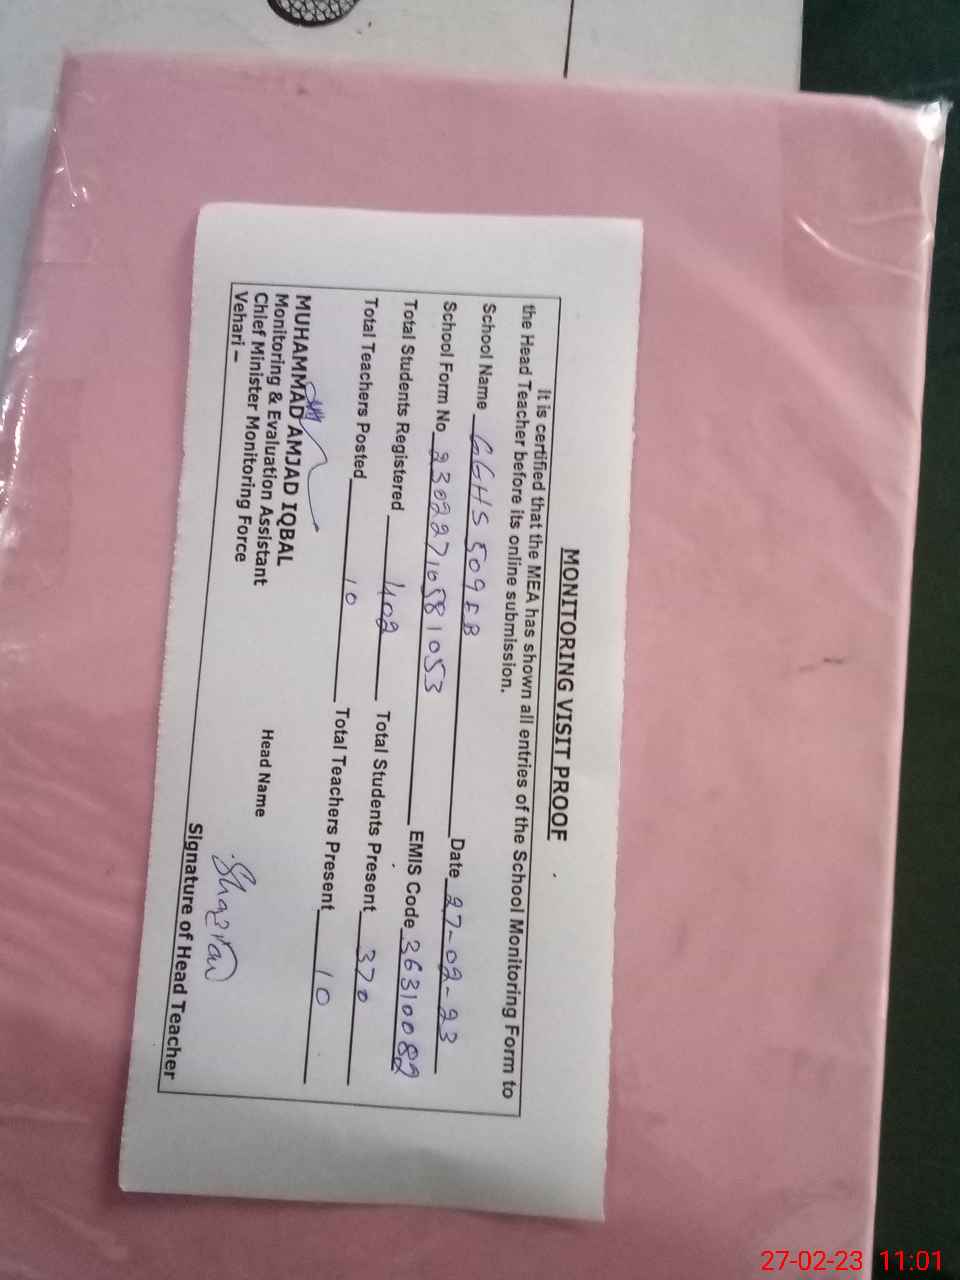 MONITORING VISIT PROOF
It is certified that the MEA has shown all entries of the School Monitoring Form to
the Head Teacher before its online submission.
School Name GGHS 509 EB Date 27-02-23
School Form No 23022710581053 EMIS Code 36310082
Total Students Registered 402 Total Students Present 370
Total Teachers Posted 10 Total Teachers Present 10
MUHAMMAD AMJAD IQBAL
Monitoring & Evaluation Assistant
Chief Minister Monitoring Force
Vehari –
Head Name
Signature of Head Teacher
27-02-23 11:01